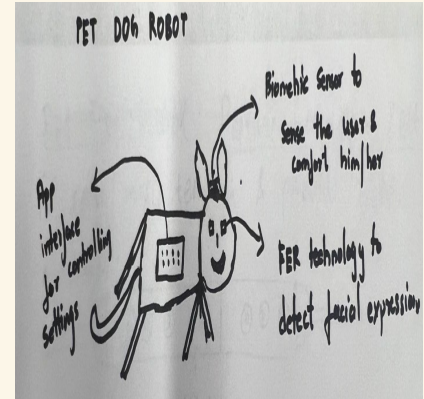 PET DOG ROBOT
Biometric Sensor to
Sense the user &
comfort him/her
App
interface
for controlling
settings
FER technology to
detect facial expression